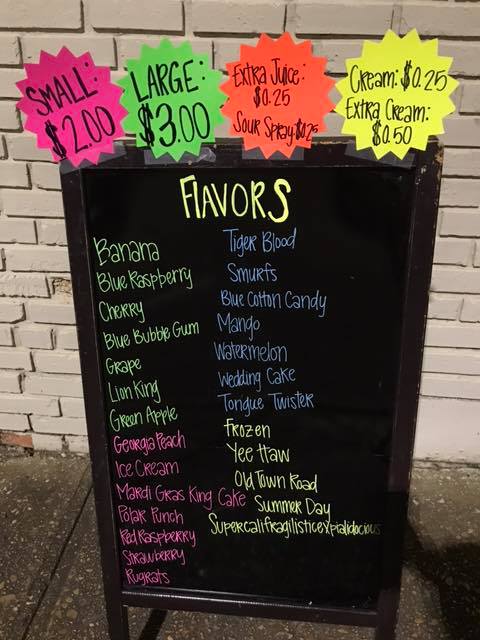 SMALL:
$2.00
LARGE:
$3.00
Extra Juice:
$0.25
Sour Spray: $0.25
Cream: $0.25
Extra Cream:
$0.50
FLAVORS
Banana
Blue Raspberry
Cherry
Blue Bubble Gum
Grape
Lion King
Green Apple
Georgia Peach
Ice Cream
Mardi Gras King Cake
Polar Punch
Red Raspberry
Strawberry
Rugrats
Tiger Blood
Smurfs
Blue Cotton Candy
Mango
Watermelon
Wedding Cake
Tongue Twister
Frozen
Yee Haw
Old Town Road
Summer Day
Supercalifragilisticexpialidocious